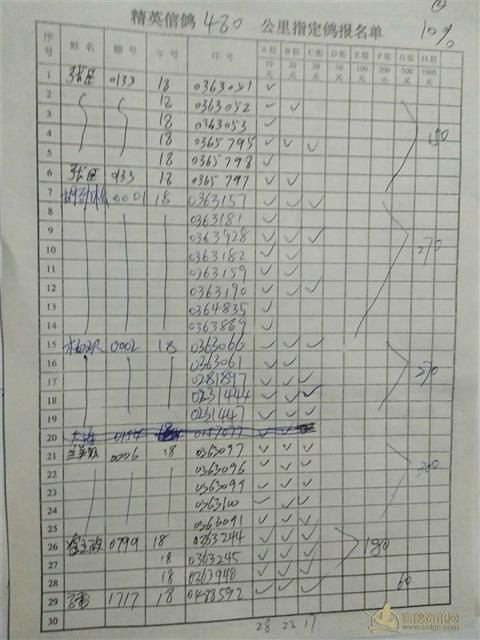 精英信鸽 480 公里指定鸽报名单 10%
序号 姓名 棚号 年号 环号 A组 10元 B组 20元 C组 30元 D组 50元 E组 100元 F组 200元 G组 500元 H组 1000元
1 0133 18 0363051 ✓
2 18 0363052 ✓ ✓
3 18 0363053 ✓
4 18 0365795 ✓ ✓ ✓ 150
5 18 0365798 ✓
6 0133 18 0365797 ✓ ✓
7 0001 18 0363157 ✓ ✓ ✓
8 0363181 ✓
9 0363928 ✓ ✓ ✓
10 0363182 ✓ ✓ 270
11 0363159 ✓ ✓
12 0363190 ✓ ✓ ✓
13 0364835 ✓
14 0363869 ✓
15 0002 18 0363066 ✓ ✓ ✓
16 0363061 ✓ ✓
17 0281897 ✓ ✓ ✓
18 0231444 ✓ ✓ ✓
19 0231447 ✓ ✓ ✓
20
21 0206 18 0363097 ✓ ✓ ✓
22 0363096 ✓ ✓ ✓
23 0363099 ✓ ✓ ✓
24 0363100 ✓ ✓ ✓
25 0363091 ✓ ✓ ✓
26 0799 18 0363244 ✓ ✓ ✓
27 18 0363245 ✓ ✓ ✓ 180
28 18 ✓ ✓ ✓
29 1717 18 0488592 ✓ ✓ ✓ 60
30
28 22 17
赛鸽资讯网
www.saige.com